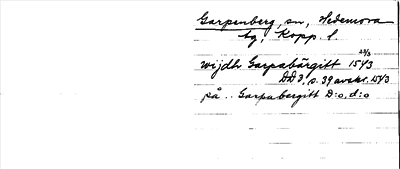 Garpenberg, sn, Hedemora
tg, Kopp l.
23/3
wijdh Garpabärgitt 1543
DD 3, s. 39 avskr. 1543
på .. Garpabargitt D:o, d:o